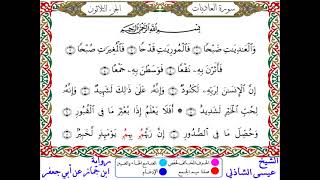 سورة العاديات الجزء الثلاثون
بِسْمِ اللَّهِ الرَّحْمَٰنِ الرَّحِيمِ
وَالْعَٰدِيَٰتِ ضَبْحًا ۝ فَالْمُورِيَٰتِ قَدْحًا ۝ فَالْمُغِيرَٰتِ صُبْحًا ۝
فَأَثَرْنَ بِهِۦ نَقْعًا ۝ فَوَسَطْنَ بِهِۦ جَمْعًا ۝
إِنَّ الْإِنسَٰنَ لِرَبِّهِۦ لَكَنُودٌ ۝ وَإِنَّهُۥ عَلَىٰ ذَٰلِكَ لَشَهِيدٌ ۝ وَإِنَّهُۥ
لِحُبِّ الْخَيْرِ لَشَدِيدٌ ۝ أَفَلَا يَعْلَمُ إِذَا بُعْثِرَ مَا فِي الْقُبُورِ ۝
وَحُصِّلَ مَا فِي الصُّدُورِ ۝ إِنَّ رَبَّهُم بِهِمُ يَوْمَئِذٍ لَّخَبِيرٌ ۝
الشيخ
عيسى الشاذلي
صلة ميم الجمع
الإدغام
رواية
ابن جماز عن أبي جعفر